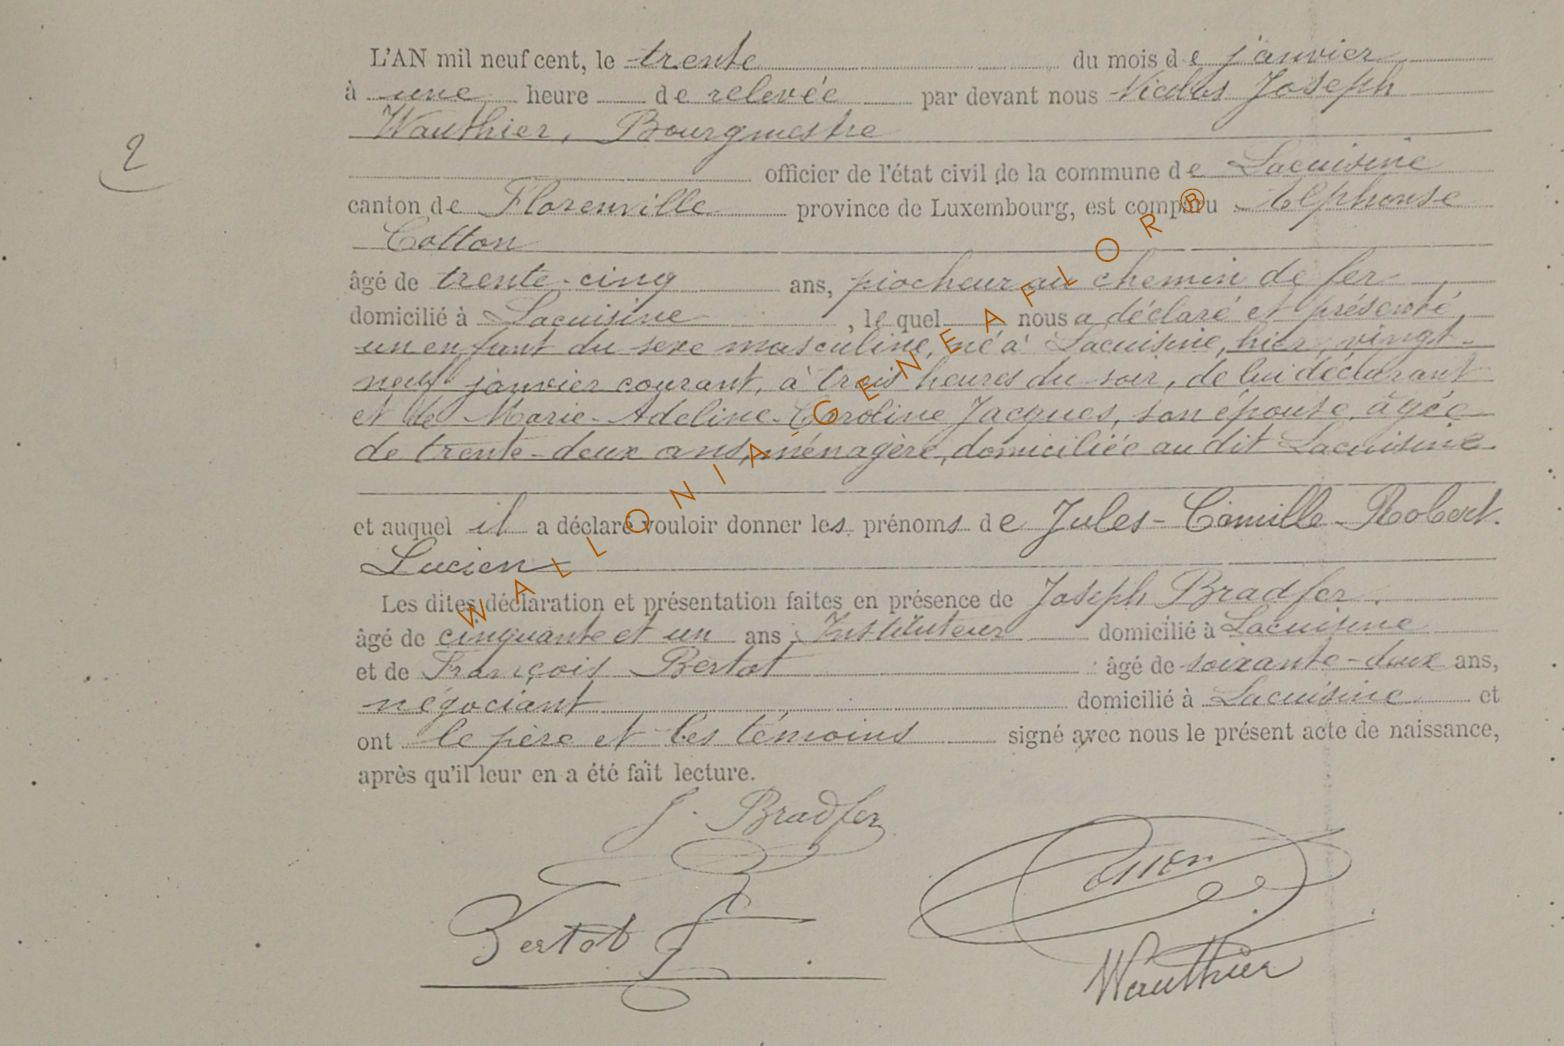 L'AN mil neuf cent, le trente du mois de janvier
à une heure de relevée par devant nous Nicolas Joseph
Wauthier, Bourgmestre
2
officier de l'état civil de la commune de Lacuisine
canton de Florenville province de Luxembourg, est comparu Alphonse
Cotton
âgé de trente-cinq ans, piocheur au chemin de fer
domicilié à Lacuisine, le quel nous a déclaré et présenté
un enfant du sexe masculine, né à Lacuisine, hier, vingt-
neuf janvier courant, à trois heures du soir, de lui déclarant
et de Marie-Adeline-Caroline Jacques, son épouse, âgée
de trente-deux ans, ménagère, domiciliée au dit Lacuisine.
et auquel il a déclaré vouloir donner les prénoms de Jules-Camille-Robert.
Lucien
Les dites déclaration et présentation faites en présence de Joseph Bradfer.
âgé de cinquante et un ans Instituteur domicilié à Lacuisine
et de François Bertot âgé de soixante-deux ans,
négociant domicilié à Lacuisine et
ont le père et les témoins signé avec nous le présent acte de naissance,
après qu'il leur en a été fait lecture.
J. Bradfer
Bertot
Wauthier
WALLONIA-GENEAFLOR®